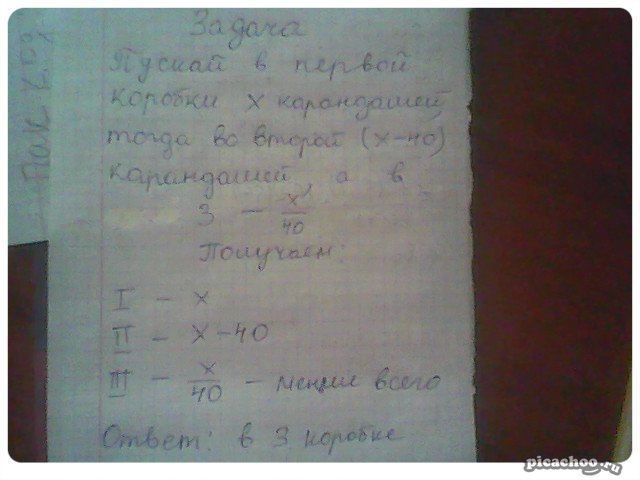 Задача
Пускай в первой
коробки х карандашей
тогда во второй (х-40)
карандашей, а в
3 - х/40
Получаем:
I - х
II - х-40
III - х/40 - менше всего
Ответ: в 3 коробке
picachoo.ru